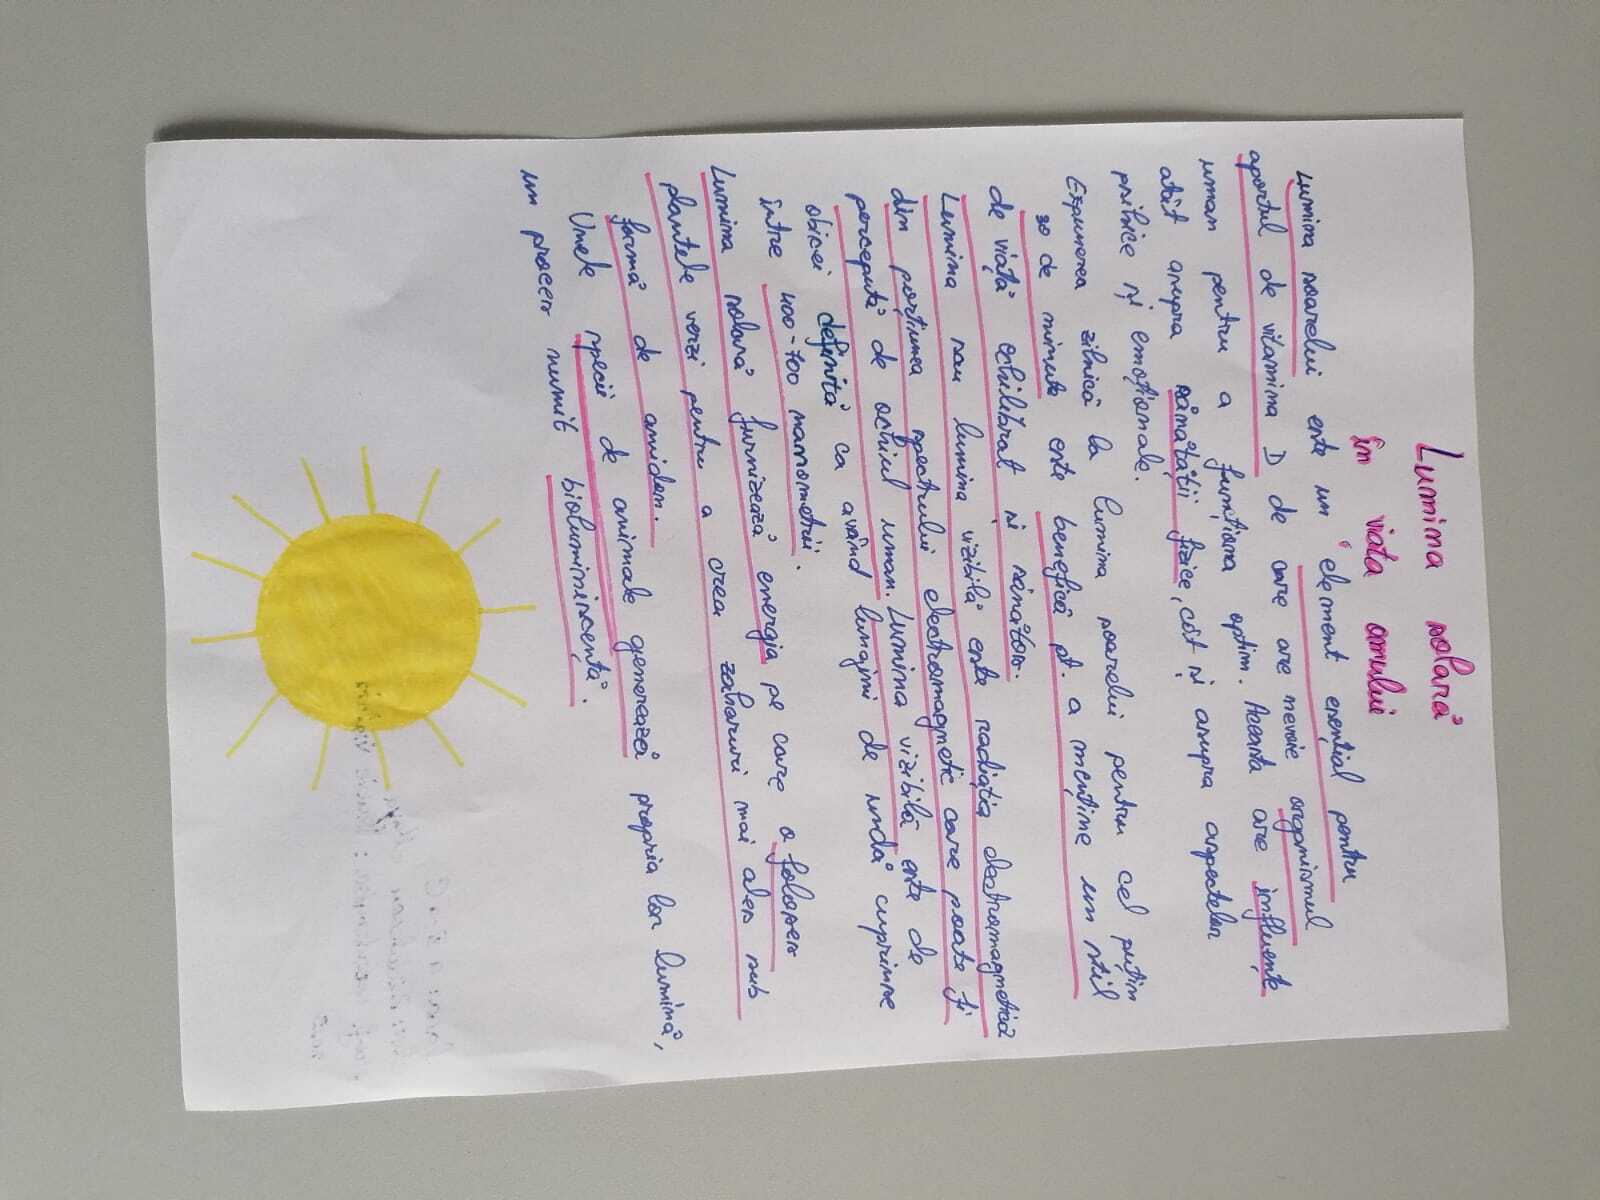 Lumina solară
în viata omului
Lumina soarelui este un element esențial pentru
aportul de vitamina D de care are nevoie organismul
uman pentru a funcționa optim. Aceasta are influențe
atât asupra sănătății fizice, cât și asupra aspectelor
psihice și emoționale.
Expunerea zilnică la lumina soarelui pentru cel puțin
30 de minute este benefică pt. a menține un stil
de viață echilibrat și sănătos.
Lumina sau lumina vizibilă este radiația electromagnetică
din porțiunea spectrului electromagnetic care poate fi
percepută de ochiul uman. Lumina vizibilă este de
obicei definită ca având lungimi de undă cuprinse
între 400-700 nanometrii.
Lumina solară furnizează energia pe care o folosesc
plantele verzi pentru a crea zaharuri mai ales sub
formă de amidon.
Unele specii de animale generează propria lor lumină,
un proces numit bioluminiscență.